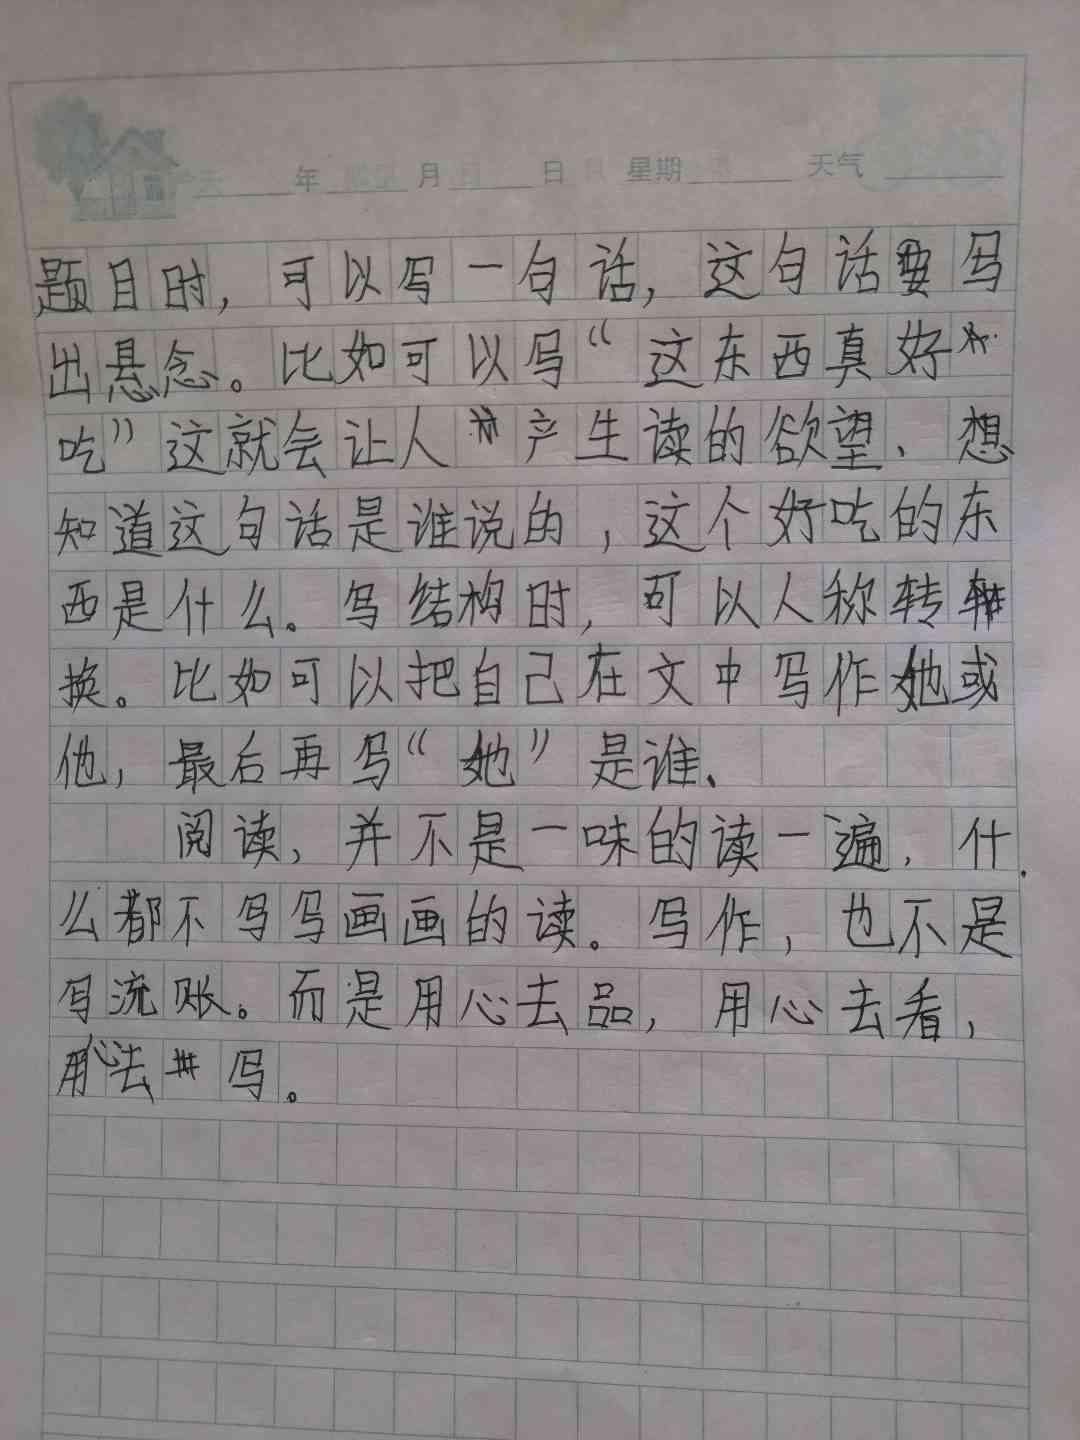 年 月 日 星期 天气
题目时，可以写一句话，这句话要写
出悬念。比如可以写“这东西真好
吃”这就会让人产生读的欲望、想
知道这句话是谁说的，这个好吃的东
西是什么。写结构时，可以人称转
换。比如可以把自己在文中写作她或
他，最后再写“她”是谁、
阅读，并不是一味的读一遍，什
么都不写写画画的读。写作，也不是
写流账。而是用心去品，用心去看，
用心去写。